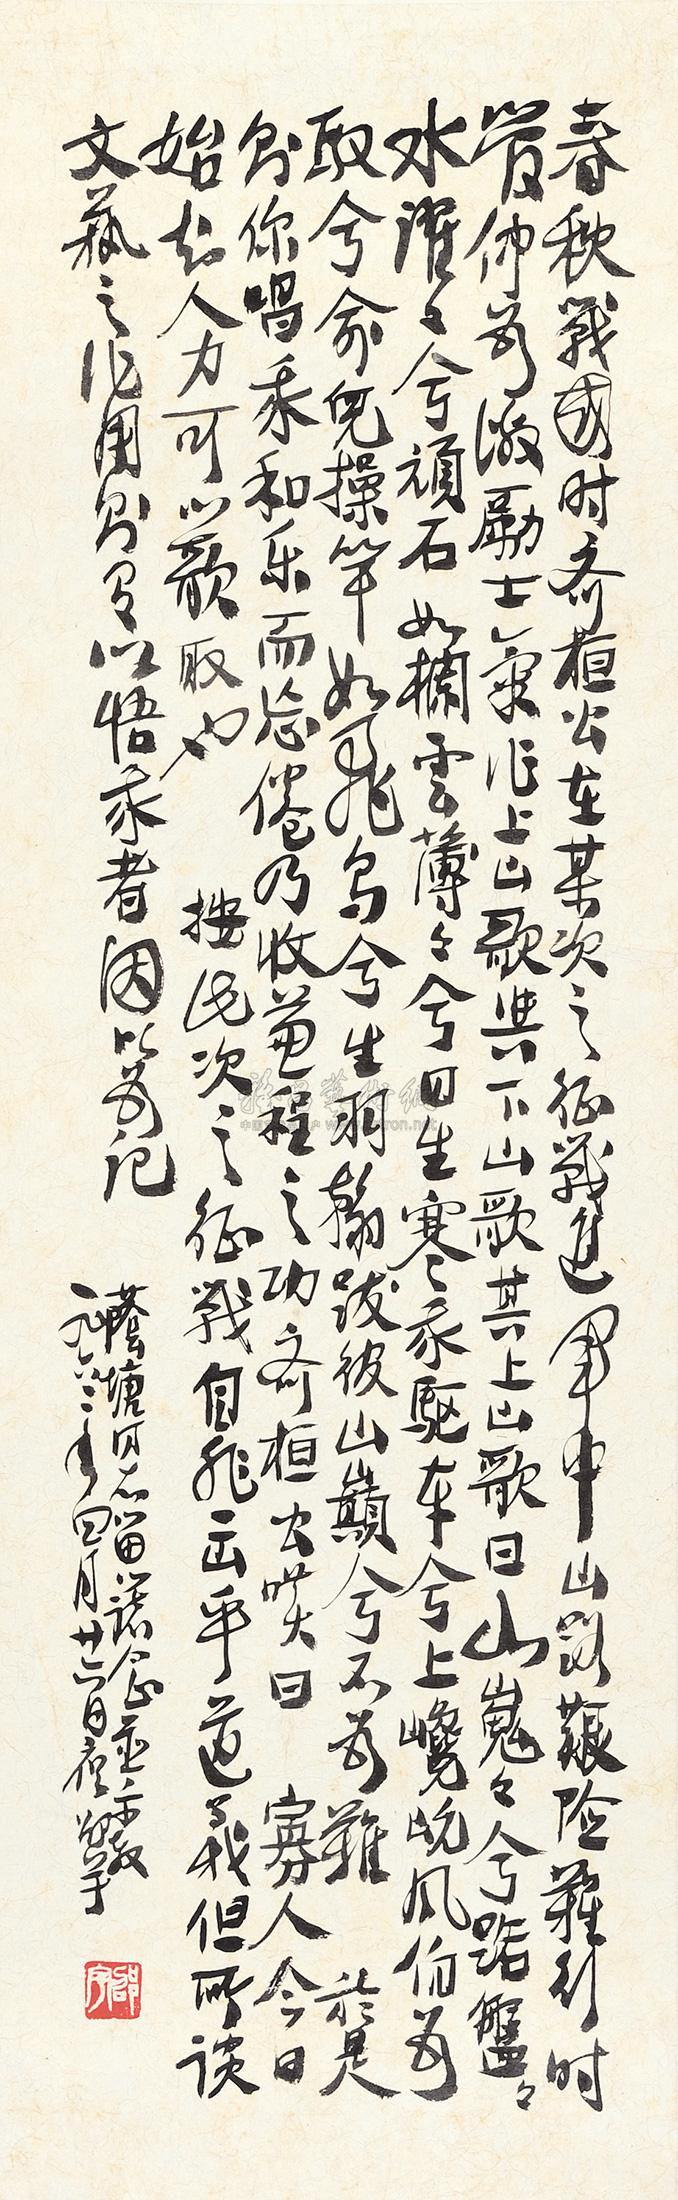 春秋战国时齐桓公在某次之征战进军中山路艰险难行时
管仲为激励士气作上山歌与下山歌其上山歌曰山嵬々兮路盤々
水濯々兮顽石如栏雲薄々兮日生寒々我驱车兮上巉岏风伯为
驭兮俞兒操竿如飛鸟兮生羽翰跋彼山巅兮不为难於是
則你唱我和乐而忘倦乃收兼程之功齐桓公叹曰寡人今日
始知人力可以歌取也按此次之征战自非正乎道义但所谈
文藝之作用則足以悟我者因以为记
蔭塘同志留諸念並示教
一九六二年四月廿六日夜